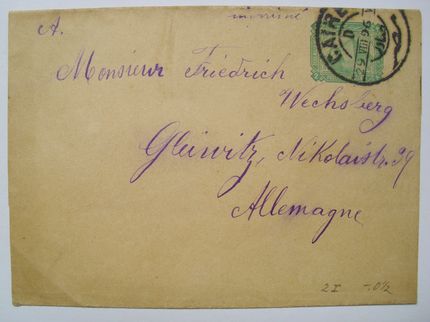 imprimé
A.
CAIRE
D
29 VIII 96
Monsieur Friedrich
Wechsberg
Gleiwitz, Nikolaistr. 39
Allemagne
2 I -.01/2